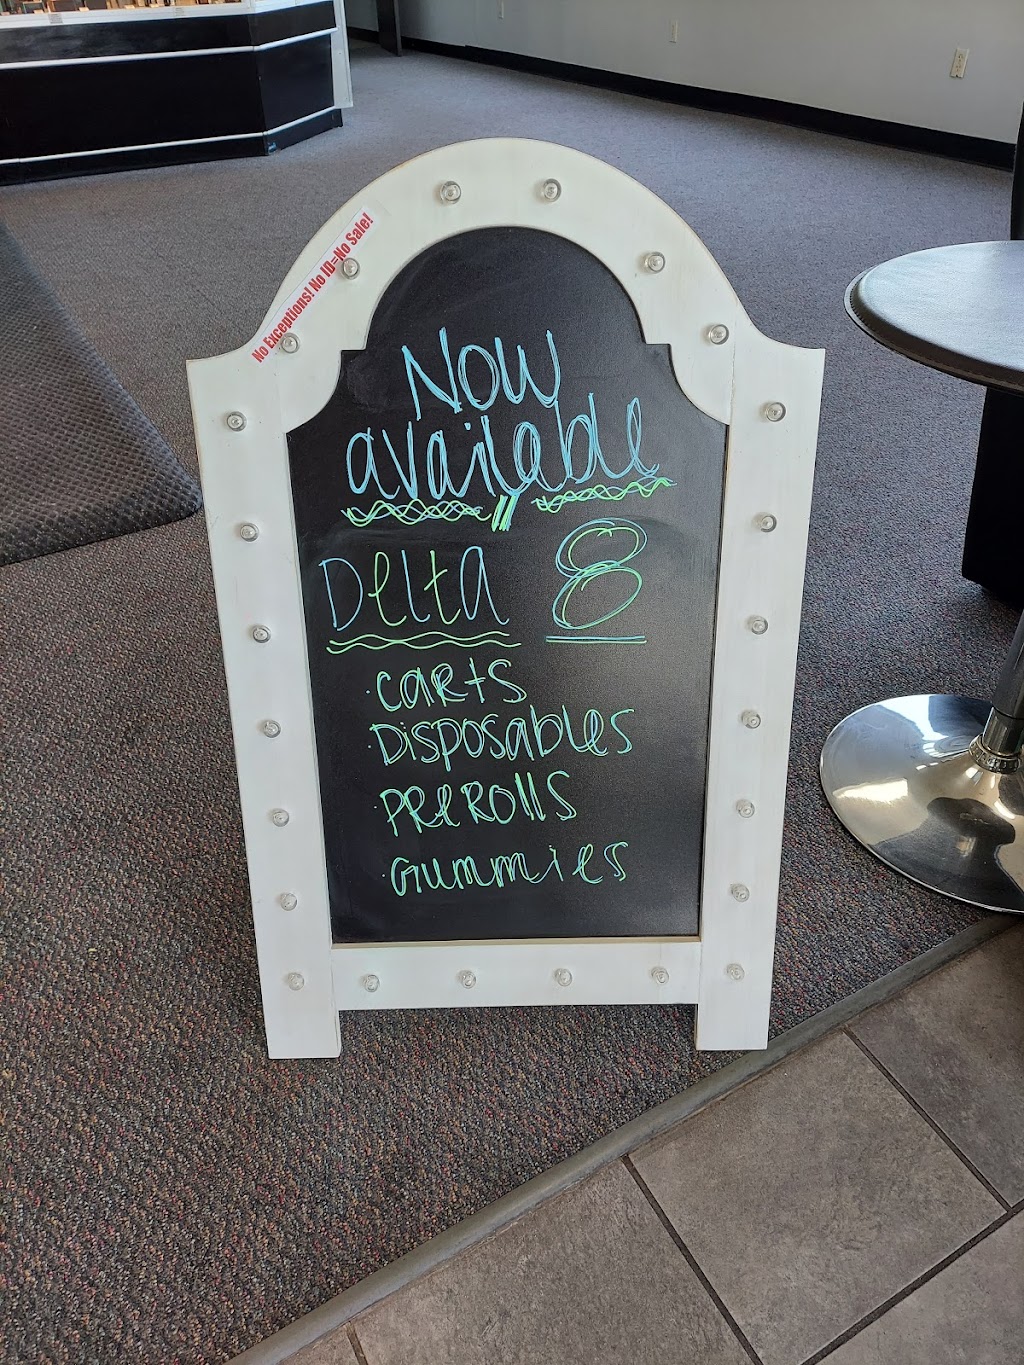 No Exceptions! No ID=No Sale!
Now
available
Delta 8
· Carts
· Disposables
· PreRolls
· Gummies